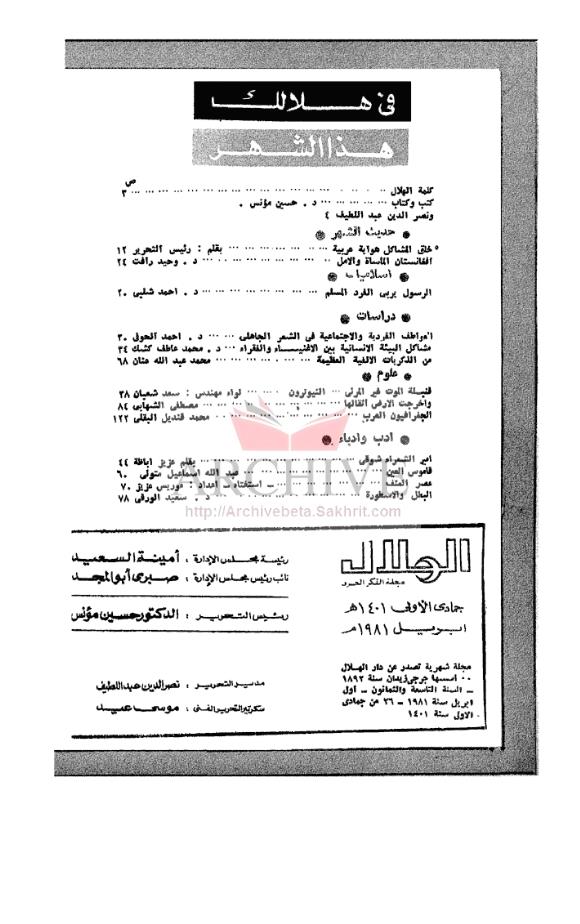 فى هلالك
هذا الشهر
ص
كلمة الهلال ... ٣
كتب وكتاب ... د . حسين مؤنس .
ونصر الدين عبد اللطيف ٤
حديث الشهر
خلق المشاكل هواية عربية ... بقلم : رئيس التحرير ١٢
افغانستان المأساة والامل ... د . وحيد رافت ٢٤
اسلاميات
الرسول يربى الفرد المسلم ... د . احمد شلبى ٢٠
دراسات
العواطف الفردية والاجتماعية فى الشعر الجاهلى ... د . احمد الحوفى ٣٠
مشاكل البيئة الانسانية بين الاغنيـــاء والفقراء ... د . محمد عاطف كشك ٣٤
من الذكريات الالفية العظيمة ... محمد عبد الله عنان ٦٨
علوم
قنبلة الموت غير المرئى ... النيوترون ... لواء مهندس : سعد شعبان ٣٨
واخرجت الارض اثقالها ... مصطفى الشهابى ٨٤
الجغرافيون العرب ... محمد قنديل البقلى ١٢٢
ادب وادباء
امير الشعراء شوقى ... بقلم عزيز اباظة ٤٤
قاموس العين ... عبد الله اسماعيل متولى ٦٠
عصر المثقف ... ــ استفتاء ــ اعداد : موريس عزيز ٧٠
البطل والاسطورة ... د . سعيد الورقى ٧٨
ARCHIVE
http://Archivebeta.Sakhrit.com
الهلال
مجلة الفكر الحر
جمادى الأولى ١٤٠١ هـ
ابريل ١٩٨١ مـ
مجلة شهرية تصدر عن دار الهلال
٠٠ اسسها جرجى زيدان سنة ١٨٩٢
ــ السنة التاسعة والثمانون ــ اول
ابريل سنة ١٩٨١ ــ ٢٦ من جمادى
الاول سنة ١٤٠١ .
رئيسة مجلس الإدارة : أمينة السعيد
نائب رئيس مجلس الإدارة : صبرى أبو المجد
رئيس التحرير : الدكتور حسين مؤنس
مدسير التحرير : نصر الدين عبد اللطيف
سكرتير التحرير الفنى : موسى عيد